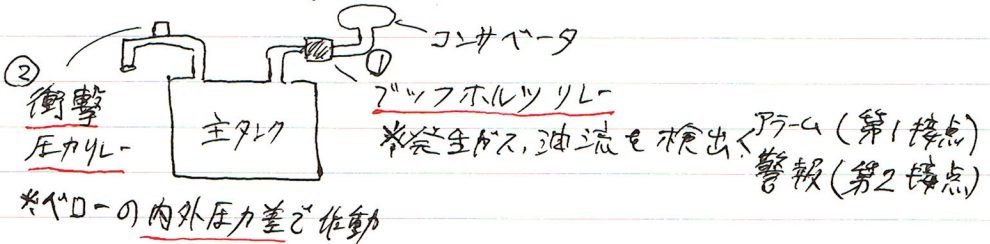 コンサベータ
①
②
衝撃
圧力リレー
主タンク
ブッフホルツリレー
※発生ガス、油流を検出
アラーム(第1接点)
警報(第2接点)
※ベローの内外圧力差で作動